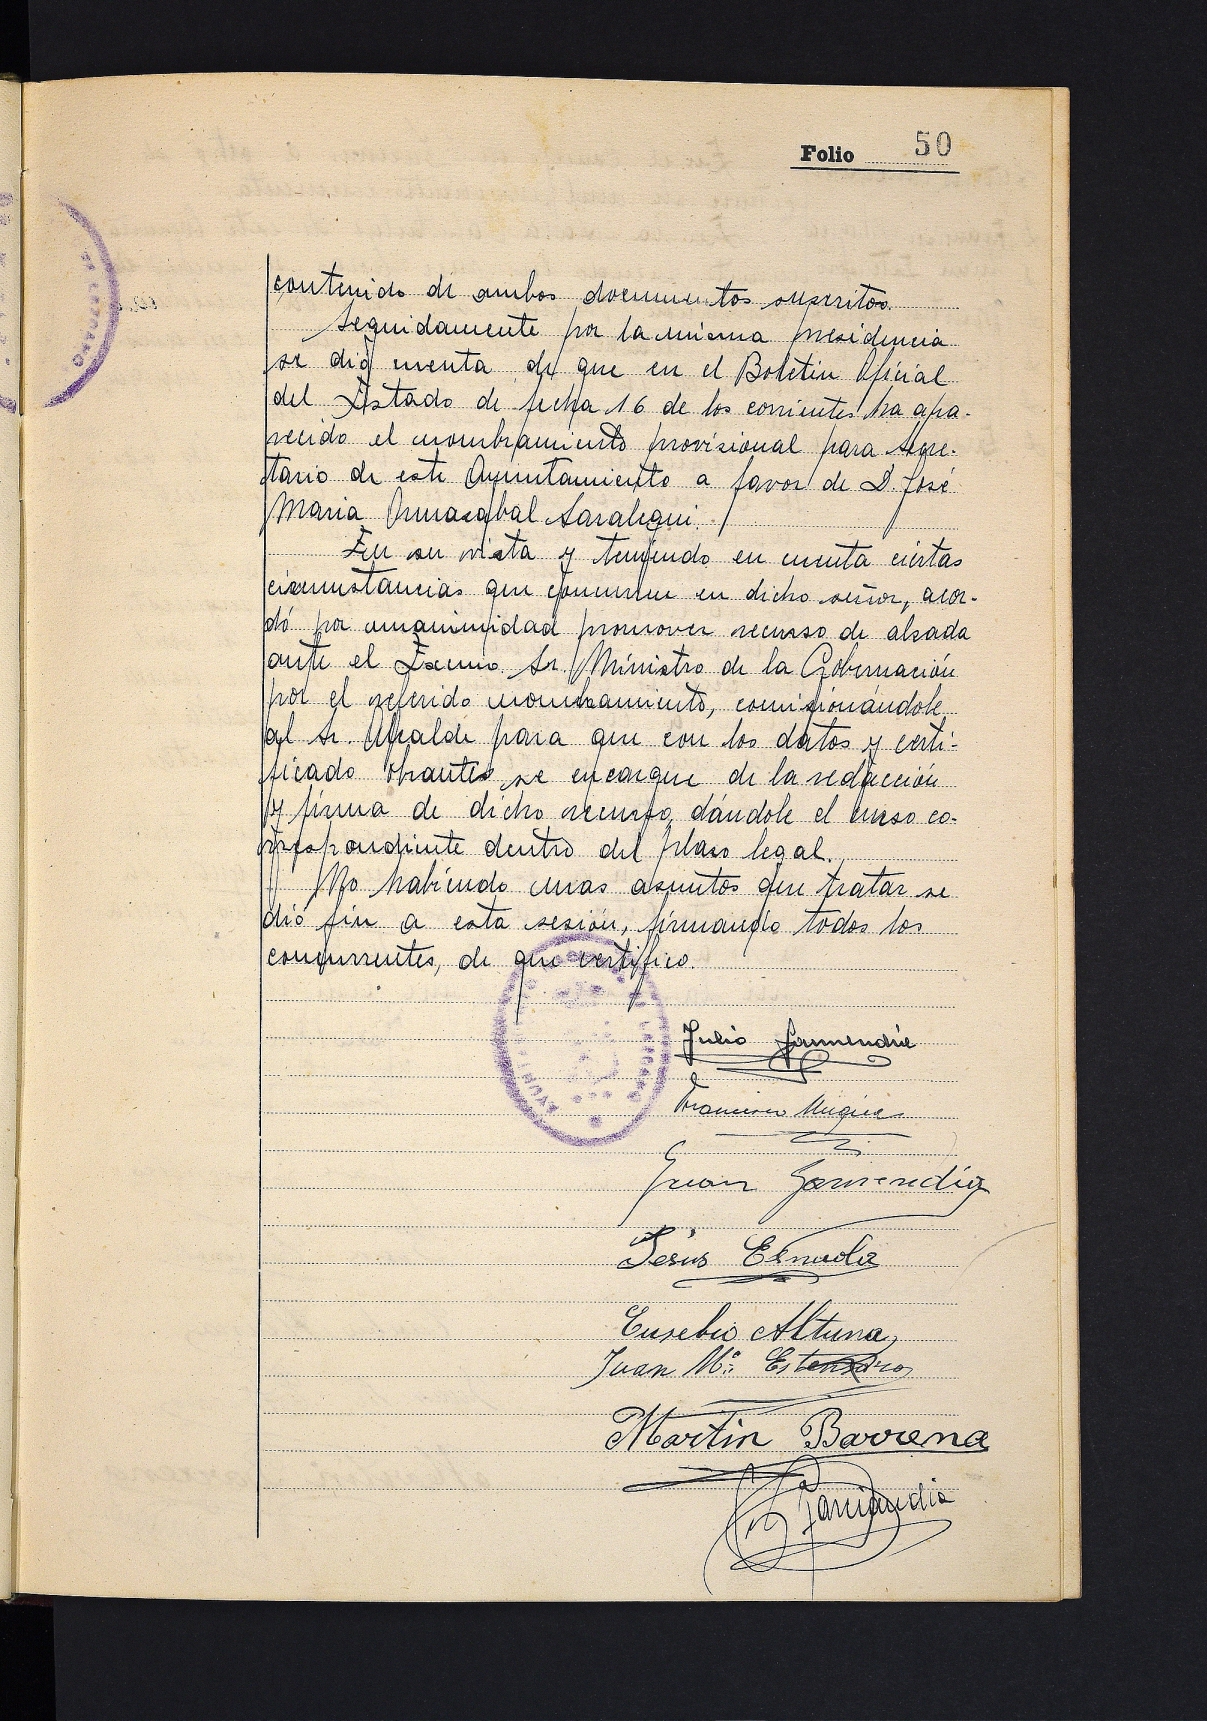 Folio 50
contenido de ambos documentos suscritos.
Seguidamente por la misma presidencia
se dió cuenta de que en el Boletin Oficial
del Estado de fecha 16 de los corrientes ha apa-
recido el nombramiento provisional para Secre-
tario de este Ayuntamiento a favor de D. José
Maria Aumasabal Saralegui.
En su vista y teniendo en cuenta ciertas
circunstancias que concurren en dicho señor, acor-
dó por unanimidad promover recurso de alzada
ante el Excmo. Sr. Ministro de la Gobernación
por el referido nombramiento, comisionándole
al Sr. Alcalde para que con los datos y certi-
ficado obrantes se encargue de la redacción
y firma de dicho recurso, dándole el curso co-
rrespondiente dentro del plazo legal.
No habiendo mas asuntos que tratar se
dió fin a esta sesión, firmando todos los
concurrentes, de que certifico.
Julio Garmendia
Francisco Mugica
Juan Garmendia
Jesús Esnaola
Eusebio Altuna
Juan Mª Estensoro
Martin Barrena
Garmendia